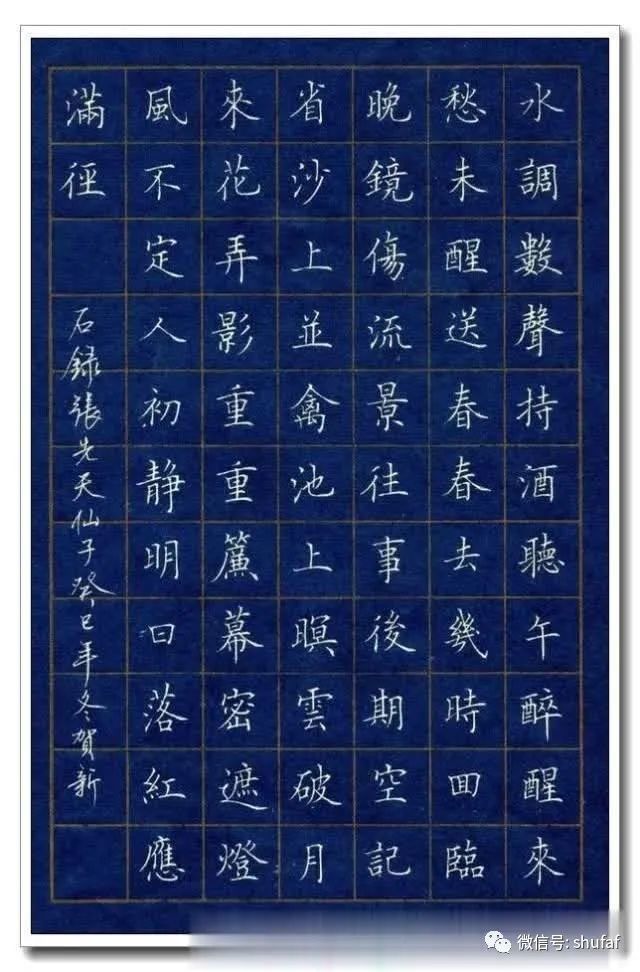 水調數聲持酒聽午醉醒來
愁未醒送春春去幾時回臨
晚鏡傷流景往事後期空記
省沙上並禽池上暝雲破月
來花弄影重重簾幕密遮燈
風不定人初靜明日落紅應
滿徑
右錄張先天仙子癸巳年冬賀新
微信号: shufaf